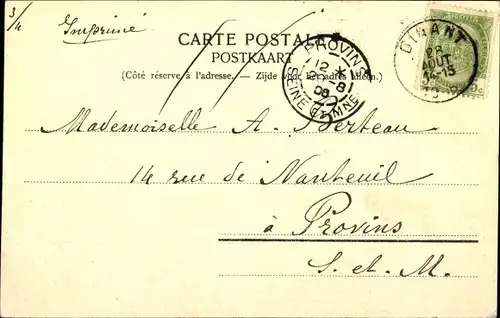 3/4
Imprimé
CARTE POSTALE
POSTKAART
(Côté réservé à l'adresse. – Zijde voor het adres alleen.)
PROVINS
12
08
SEINE ET MARNE
DINANT
28
AOUT
14-15
Mademoiselle A. Berteau
14 rue de Nanteuil
à Provins
S. et. M.